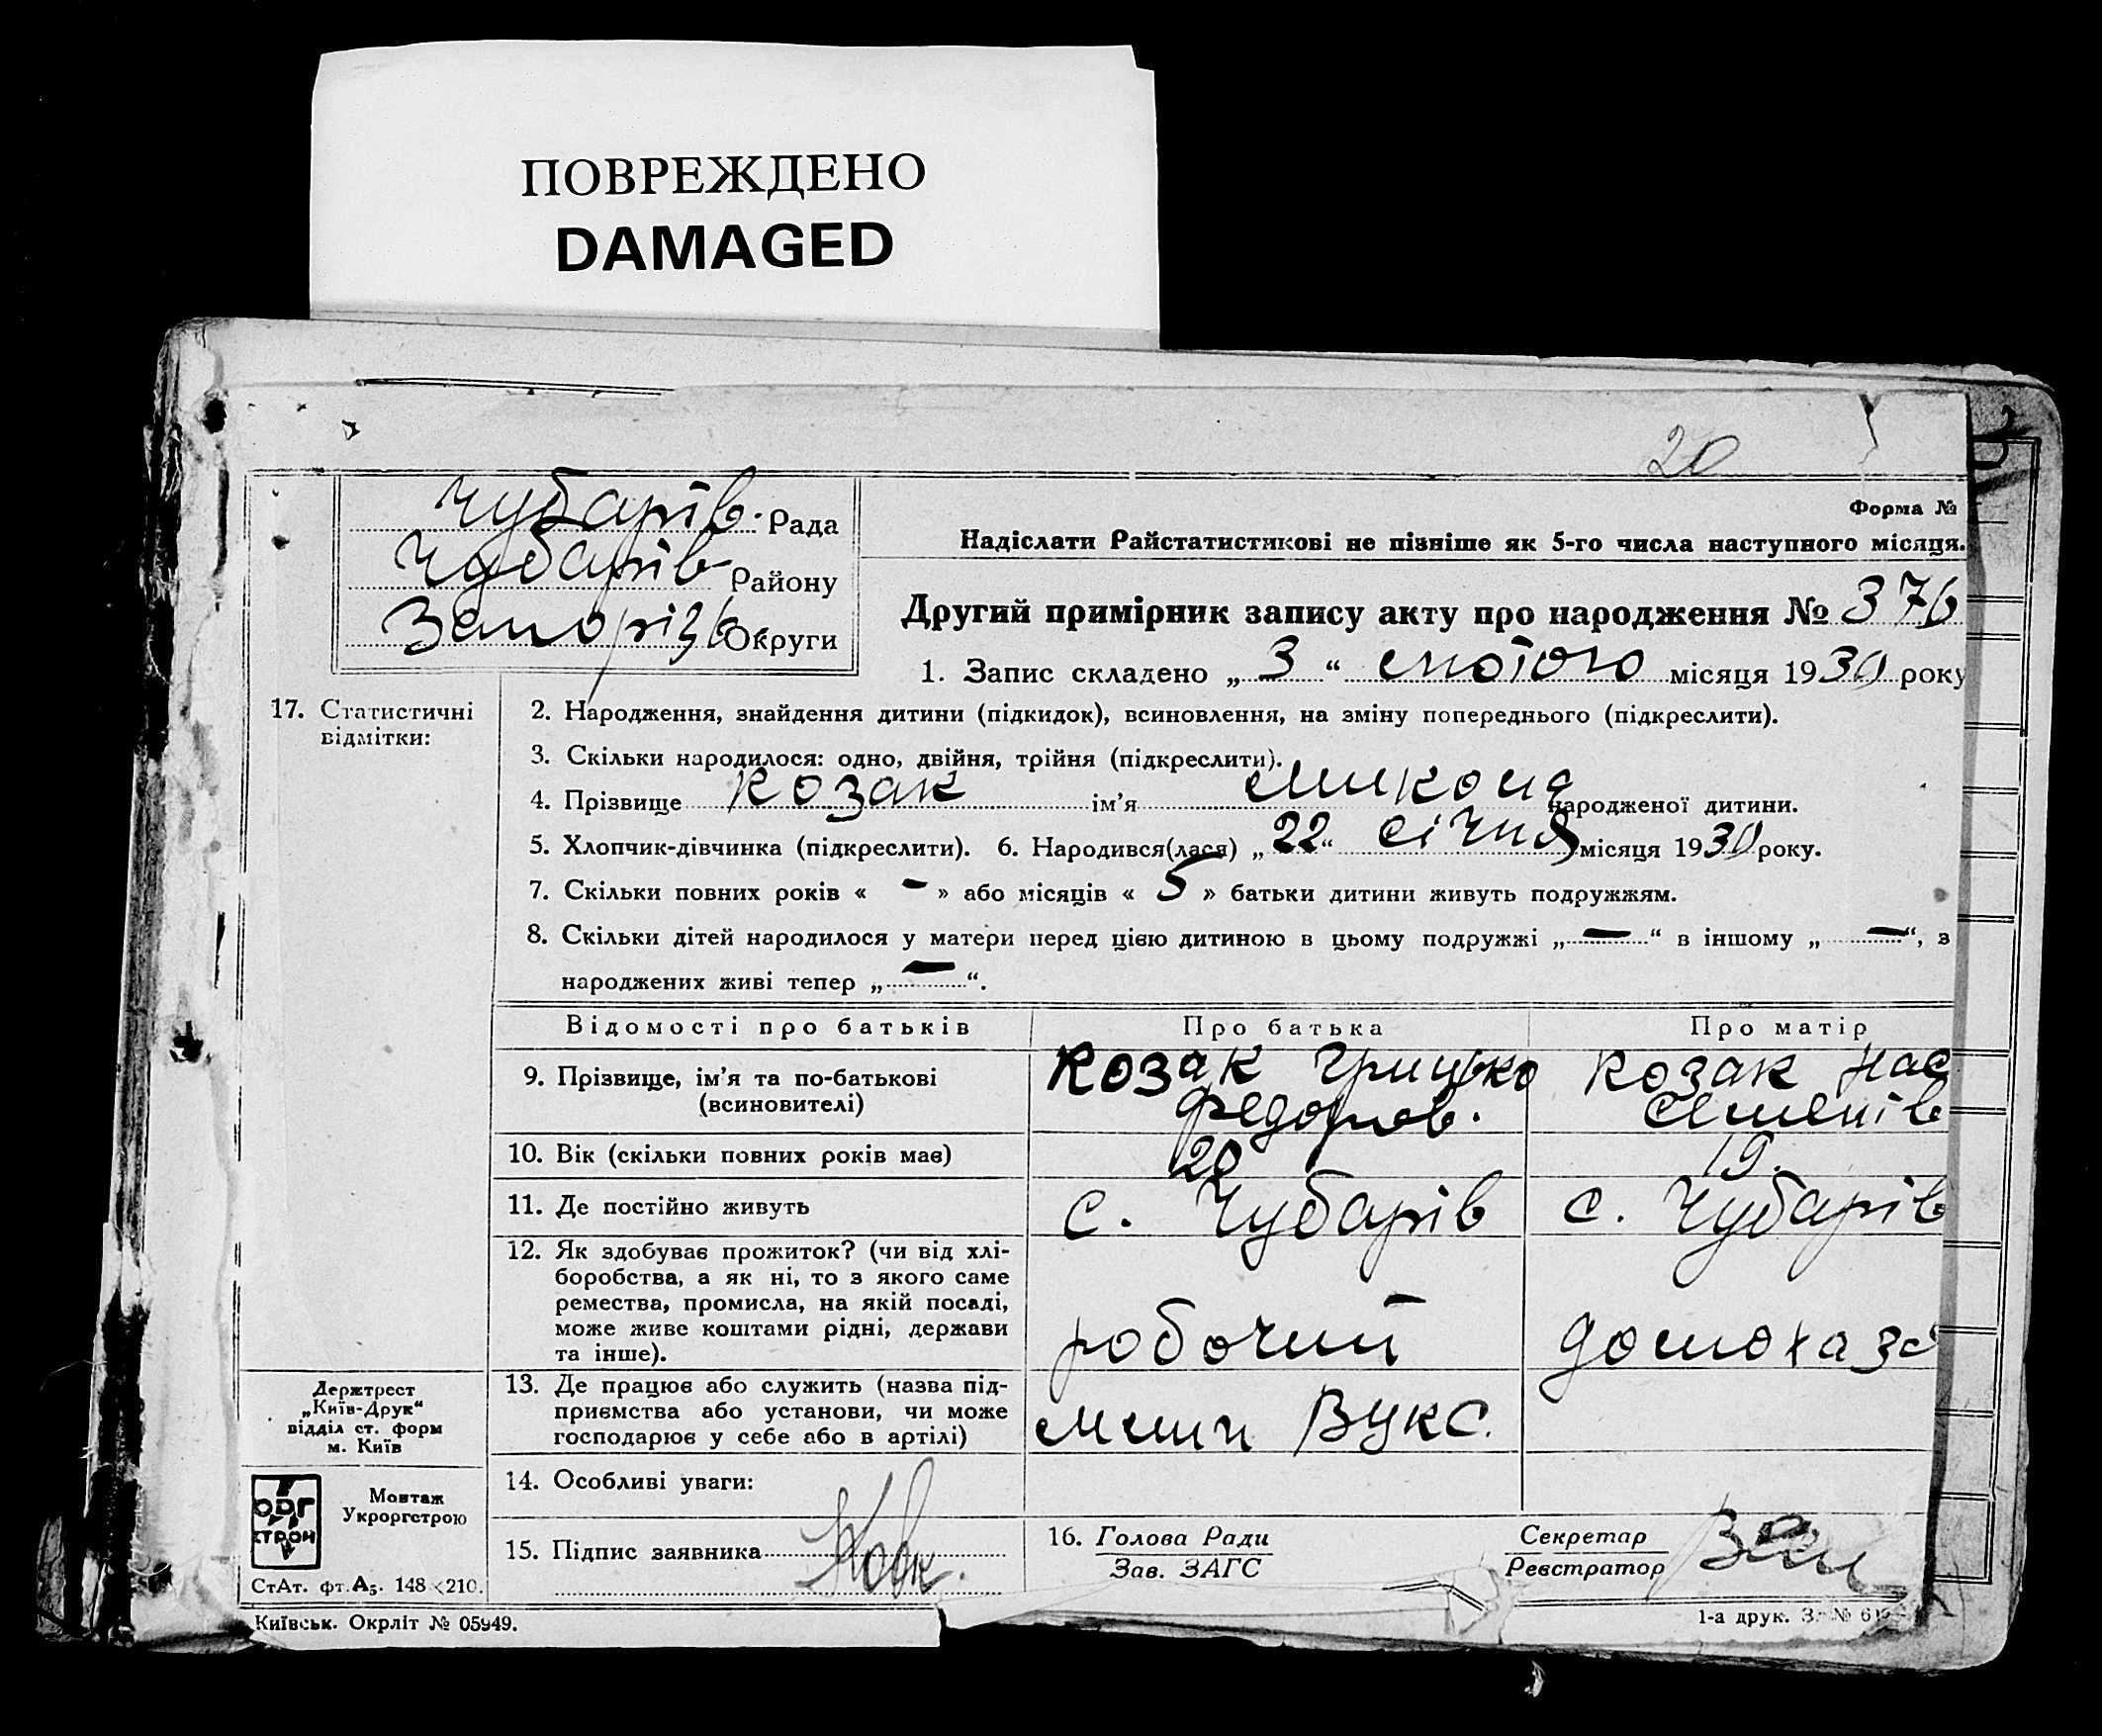 ПОВРЕЖДЕНО
DAMAGED
20
Чубарів. Рада
Чубарів Району
Запорізь. Округи
Форма №
Надіслати Райстатистикові не пізніше як 5-го числа наступного місяця.
Другий примірник запису акту про народження № 376
1. Запис складено „3“ лютого місяця 1930 року
17. Статистичні
відмітки:
2. Народження, знайдення дитини (підкидок), всиновлення, на зміну попереднього (підкреслити).
3. Скільки народилося: одно, двійня, трійня (підкреслити).
4. Прізвище Козак ім’я Микола народженої дитини.
5. Хлопчик-дівчинка (підкреслити). 6. Народився(лася) „22“ січня місяця 1930 року.
7. Скільки повних років « - » або місяців « 5 » батьки дитини живуть подружжям.
8. Скільки дітей народилося у матери перед цією дитиною в цьому подружжі „—“ в іншому „—“, з
народжених живі тепер „—“.
Відомості про батьків Про батька Про матір
9. Прізвище, ім’я та по-батькові
(всиновителі)
Козак Грицько
Федоров.
Козак Нас
Семенів
10. Вік (скільки повних років має) 20 19.
11. Де постійно живуть с. Чубарів с. Чубарів
12. Як здобуває прожиток? (чи від хлі-
боробства, а як ні, то з якого саме
ремества, промисла, на якій посаді,
може живе коштами рідні, держави
та інше).
робочий
домохазя
13. Де працює або служить (назва під-
приємства або установи, чи може
господарює у себе або в артілі)
ВУКС.
14. Особливі уваги:
15. Підпис заявника
16. Голова Ради
Зав. ЗАГС
Секретар
Реєстратор
Держтрест
„Київ-Друк“
відділ ст. форм
м. Київ
ОРГ
СТРОЙ
Монтаж
Укроргстрою
СтАт. фт. А5. 148×210.
Київськ. Окрліт № 05949.
1-а друк.